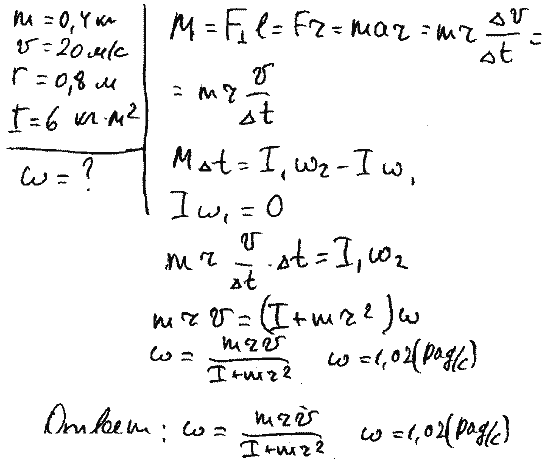 m = 0,4 кг
v = 20 м/с
r = 0,8 м
I = 6 кг·м²
ω = ?
M = F⊥ l = Fr = mar = mr Δv/Δt =
= mr v/Δt
MΔt = I₁ω₂ − Iω₁
Iω₁ = 0
mr v/Δt · Δt = I₁ω₂
mrv = (I + mr²)ω
ω = mrv/(I + mr²) ω = 1,02 (рад/с)
Ответ: ω = mrv/(I + mr²) ω = 1,02 (рад/с)